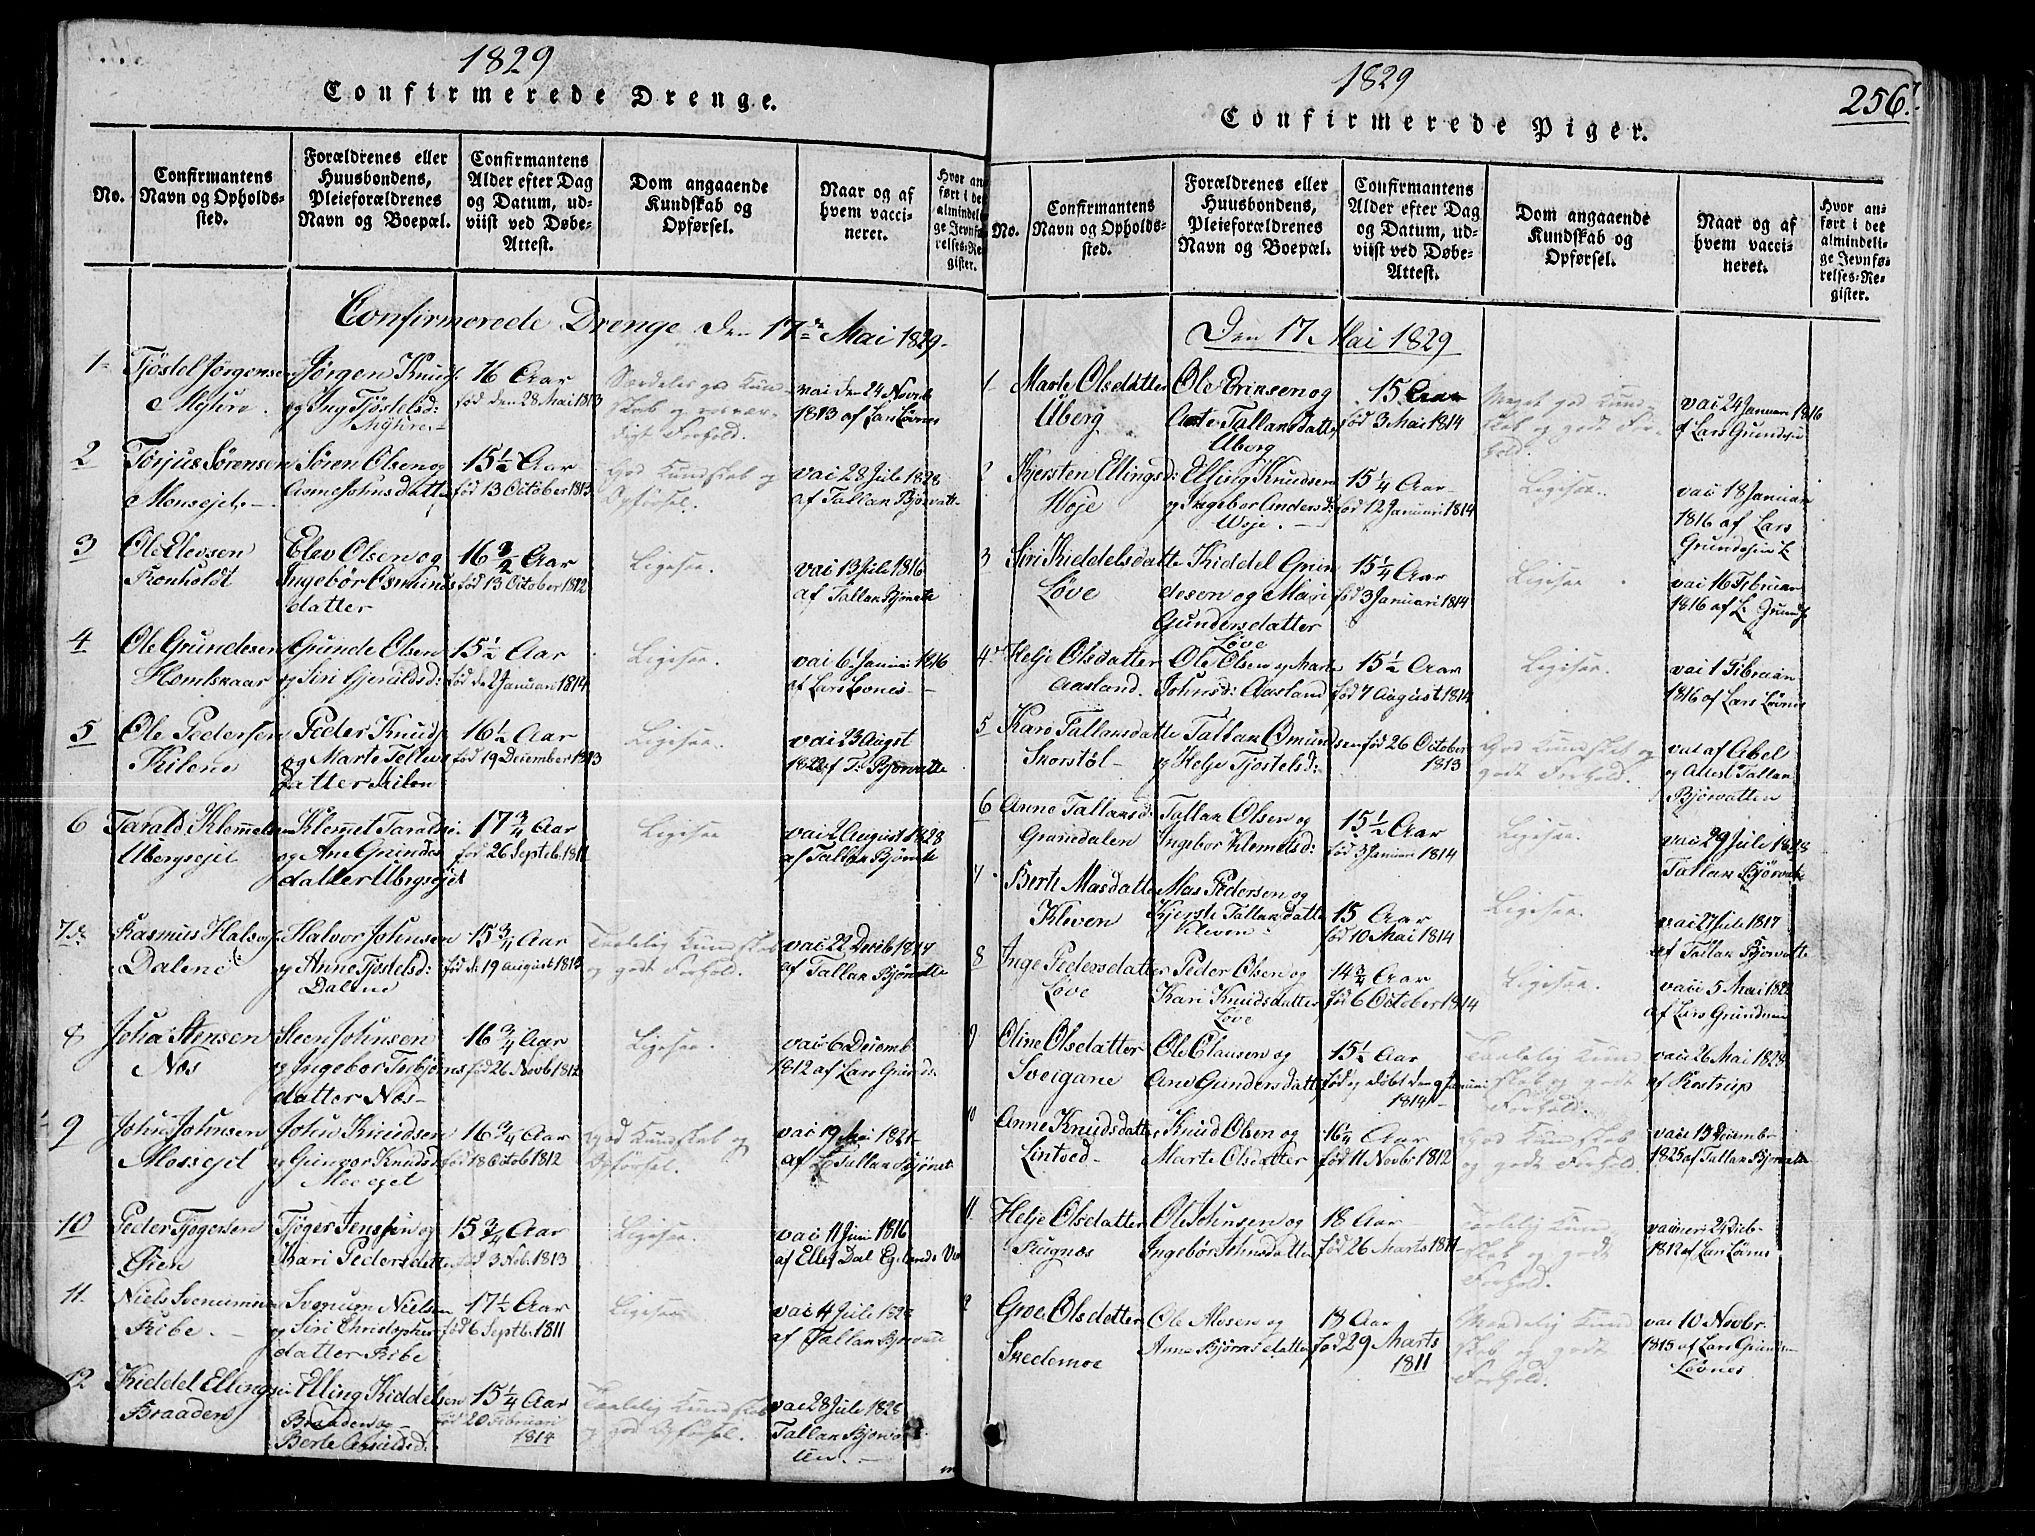 1829
Confirmerede Drenge.
No.
Confirmantens
Navn og Opholds-
sted.
Forældrenes eller
Huusbondens,
Pleieforældrenes
Navn og Boepæl.
Confirmantens
Alder efter Dag
og Datum, ud-
viist ved Døbe-
Attest.
Dom angaaende
Kundskab og
Opførsel.
Naar og af
hvem vacci-
neret.
Hvor an-
ført i det
almindeli-
ge Jevnfø-
relses-Re-
gister.
Confirmerede Drenge den 17de Mai 1829.
1
Tjöstel Jörgensen
Jörgen Knuds
og Ing Tjöstelsd:
16 Aar
fød den 28 Mai 1813
Særdeles god Kund-
skab og
digt Forhold.
vai den 24 Novb
1813 af Lars Lövnes
2
Torjus Sörensen
Monsejet
Sören Olsen og
Asme Johnsdatter
15 1/2 Aar
fød 13 October 1813
God Kundskab og
Opførsel.
vai 28 Jule 1828
af Tallak Bjørvatt
3
Ole Elevsen
Ronholdt
Elev Olsen og
Ingebör Osmunds
datter
16 3/2 Aar
fød 13 October 1812
Ligesaa.
vai 13 Jule 1816
af Tallak Bjørvatte
4
Ole Grundesen
Homlskaar
Grunde Olsen
og Siri Gjeruldsd:
15 1/2 Aar
fød de 2 Januari 1814
Ligesaa.
vai 6 Januari 1816
af Lars Lövnes
5
Ole Pedersen
Kilene
Peder Knuds
og Marte Tellevs
datter Kilen
16 1/2 Aar
fød 19 December 1813
Ligesaa.
vai 23 August
1822 af T. Bjørvatte
6
Tarald Klemetsen
Ubergsejet
Klemet Taralds
og Ane Grundes
datter Ubergsejet
17 3/4 Aar
fød 26 Septeb. 1811
Ligesaa
vai 2 August 1828
af Tallak Bjørvatte
7de
Rasmus Halvors
Dalene
Halvor Johnsen
og Anne Tjöstelsd:
Dalene
15 3/4 Aar
fød de 19 August 1813
Taalelig Kundskab
og godt Forhold.
vai 22 Decib 1817
af Tallak Bjørvatte
8
John Stensen
Næs
Steen Johnsen
og Ingebor Torbjöns
datter Næs
16 3/4 Aar
fød 26 Novb 1812
Ligesaa.
vai 6 Decemb
1812 af Lars Grundsd:
9
John Johnsen
Mossejet
John Knudsen
og Gunvor Knudsd
16 3/4 Aar
fød 18 Octob 1812
God Kundskab og
Opførsel.
vai 19 Mai 1821
af Tallak Bjørvat
10
Peder Tjögersen
Øien
Tjöger Jenssen og
Kari Pedersdatte
15 3/4 Aar
fød 3 Nob. 1813
Ligesaa.
vai 11 Juni 1816
af Ellef Dal Egelands V
11.
Niels Svenumsen
Ribe.
Svenum Nielsen
og Siri Christopher
datter Ribe
17 1/2 Aar
fød 6 Septb. 1811
Ligesaa
vai 4 Jule 1828
af Tallak Bjørvatte
12
Kieddel Ellingsen
Braaden
Elling Kiddelsen
Braaden og
Berte Asuldsd:
15 1/4 Aar
fød 20 Februari
1814
Taalelig Kundskab
og god Opførsel.
vai 28 Jule 1828
Tallak Bjørva
1829
256.
Confirmerede Piger.
No.
Confirmantens
Navn og Opholds-
sted.
Forældrenes eller
Huusbondens,
Pleieforældrenes
Navn og Boepæl.
Confirmantens
Alder efter Dag
og Datum, ud-
viist ved Døbe-
Attest.
Dom angaaende
Kundskab og
Opførsel.
Naar og af
hvem vacci-
neret.
Hvor an-
ført i det
almindeli-
ge Jevnfø-
relses-Re-
gister.
Den 17 Mai 1829
1
Marte Olsdatter
Überg
Ole Eriksen og
Tallaksdatter
Uberg
15 Aar
fød 3 Mai 1814
Meget god Kund-
skab og godt For-
hold.
vai 24 Januari 1816
af Lars Grundesen
2
Kjersten Ellingsd:
Woje
Knudsen
og Ingebor Andersd:
Woje.
15 1/4 Aar
fød 12 Januari 1814
Ligesaa.
vai 18 Januari
1816 af Lars
Grundesen L
3
Siri Kieddelsdatte
Löve
Kiddel Grun
desen og Mari
Gundersdatter
Löve
15 1/4 Aar
fød 3 Januari 1814
Ligesaa
vai 16 Februari
1816 af L. Grunds
4
Helje Olsdatter
Aasland.
Ole Olsen og Marte
Johnsd: Aasland
15 1/2 Aar
fød 7 August 1814
Ligesaa.
vai 1 Februari
1816 af Lars Lövnes
5
Karo Tallaksdatte
Skorstöl
Tallak Omundsen
og Helje Tjöstelsd:
fød 26 October
1813
God Kundskab og
godt Forhold.
vai af Abel
og Attest Tallak
Bjørvatten
6
Anne Tallaksd:
Granedalen
Tallak Olsen og
Ingebor Klemetsd:
15 1/2 Aar
fød 3 Januari 1814
Ligesaa.
vai 29 Jule 1828
Tallak Bjørvatte
7
Berte Masdatte
Kleven
Mas Pedersen og
Kjerste Tallaksdatte
Kleven
15 Aar
fød 10 Mai 1814
Ligesaa.
vai 27 Jule 1817
af Tallak Bjørvatte
8
Inge Pedersdatter
Löve
Peder Olsen og
Kari Knudsdatter
Löve
14 3/4 Aar
fød 6 October 1814
Ligesaa.
vai 5 Mai 1822
af Lars Grundesen
9
Oline Olsdatter
Sveigane
Ole Clausen og
Ane Gundersdatte
15 1/2 Aar
fød og døbt den 9 Januari
1814
Taalelig Kund
skab og godt
Forhold.
vai 26 Mai 1828
af Kostrup
10
Anne Knudsdatter
Lintved
Knud Olsen og
Marte Olsdatter
16 1/4 Aar
fød 11 Novbr. 1812
God Kundskab
og godt Forhold
vai 13 December
1825 af Tallak Bjørvatte
11.
Helje Olsdatter
Rugnæs
Ole Johnsen og
Ingebör Johnsdatte
18 Aar
fød 26 Marts 1811
Taalelig Kund
skab og godt
Forhold.
vaineri 24 Dieb
1812 af Lars Lövnes
12
Groe Olsdatter
Skedemoe
Ole Alvsen og
Anne Björnsdatter
18 Aar
fød 29 Marts
1811
Maadelig Kund
skab og godt
Forhold.
vai 10 Novbr.
1815 af Lars Grundsen
Lövnes